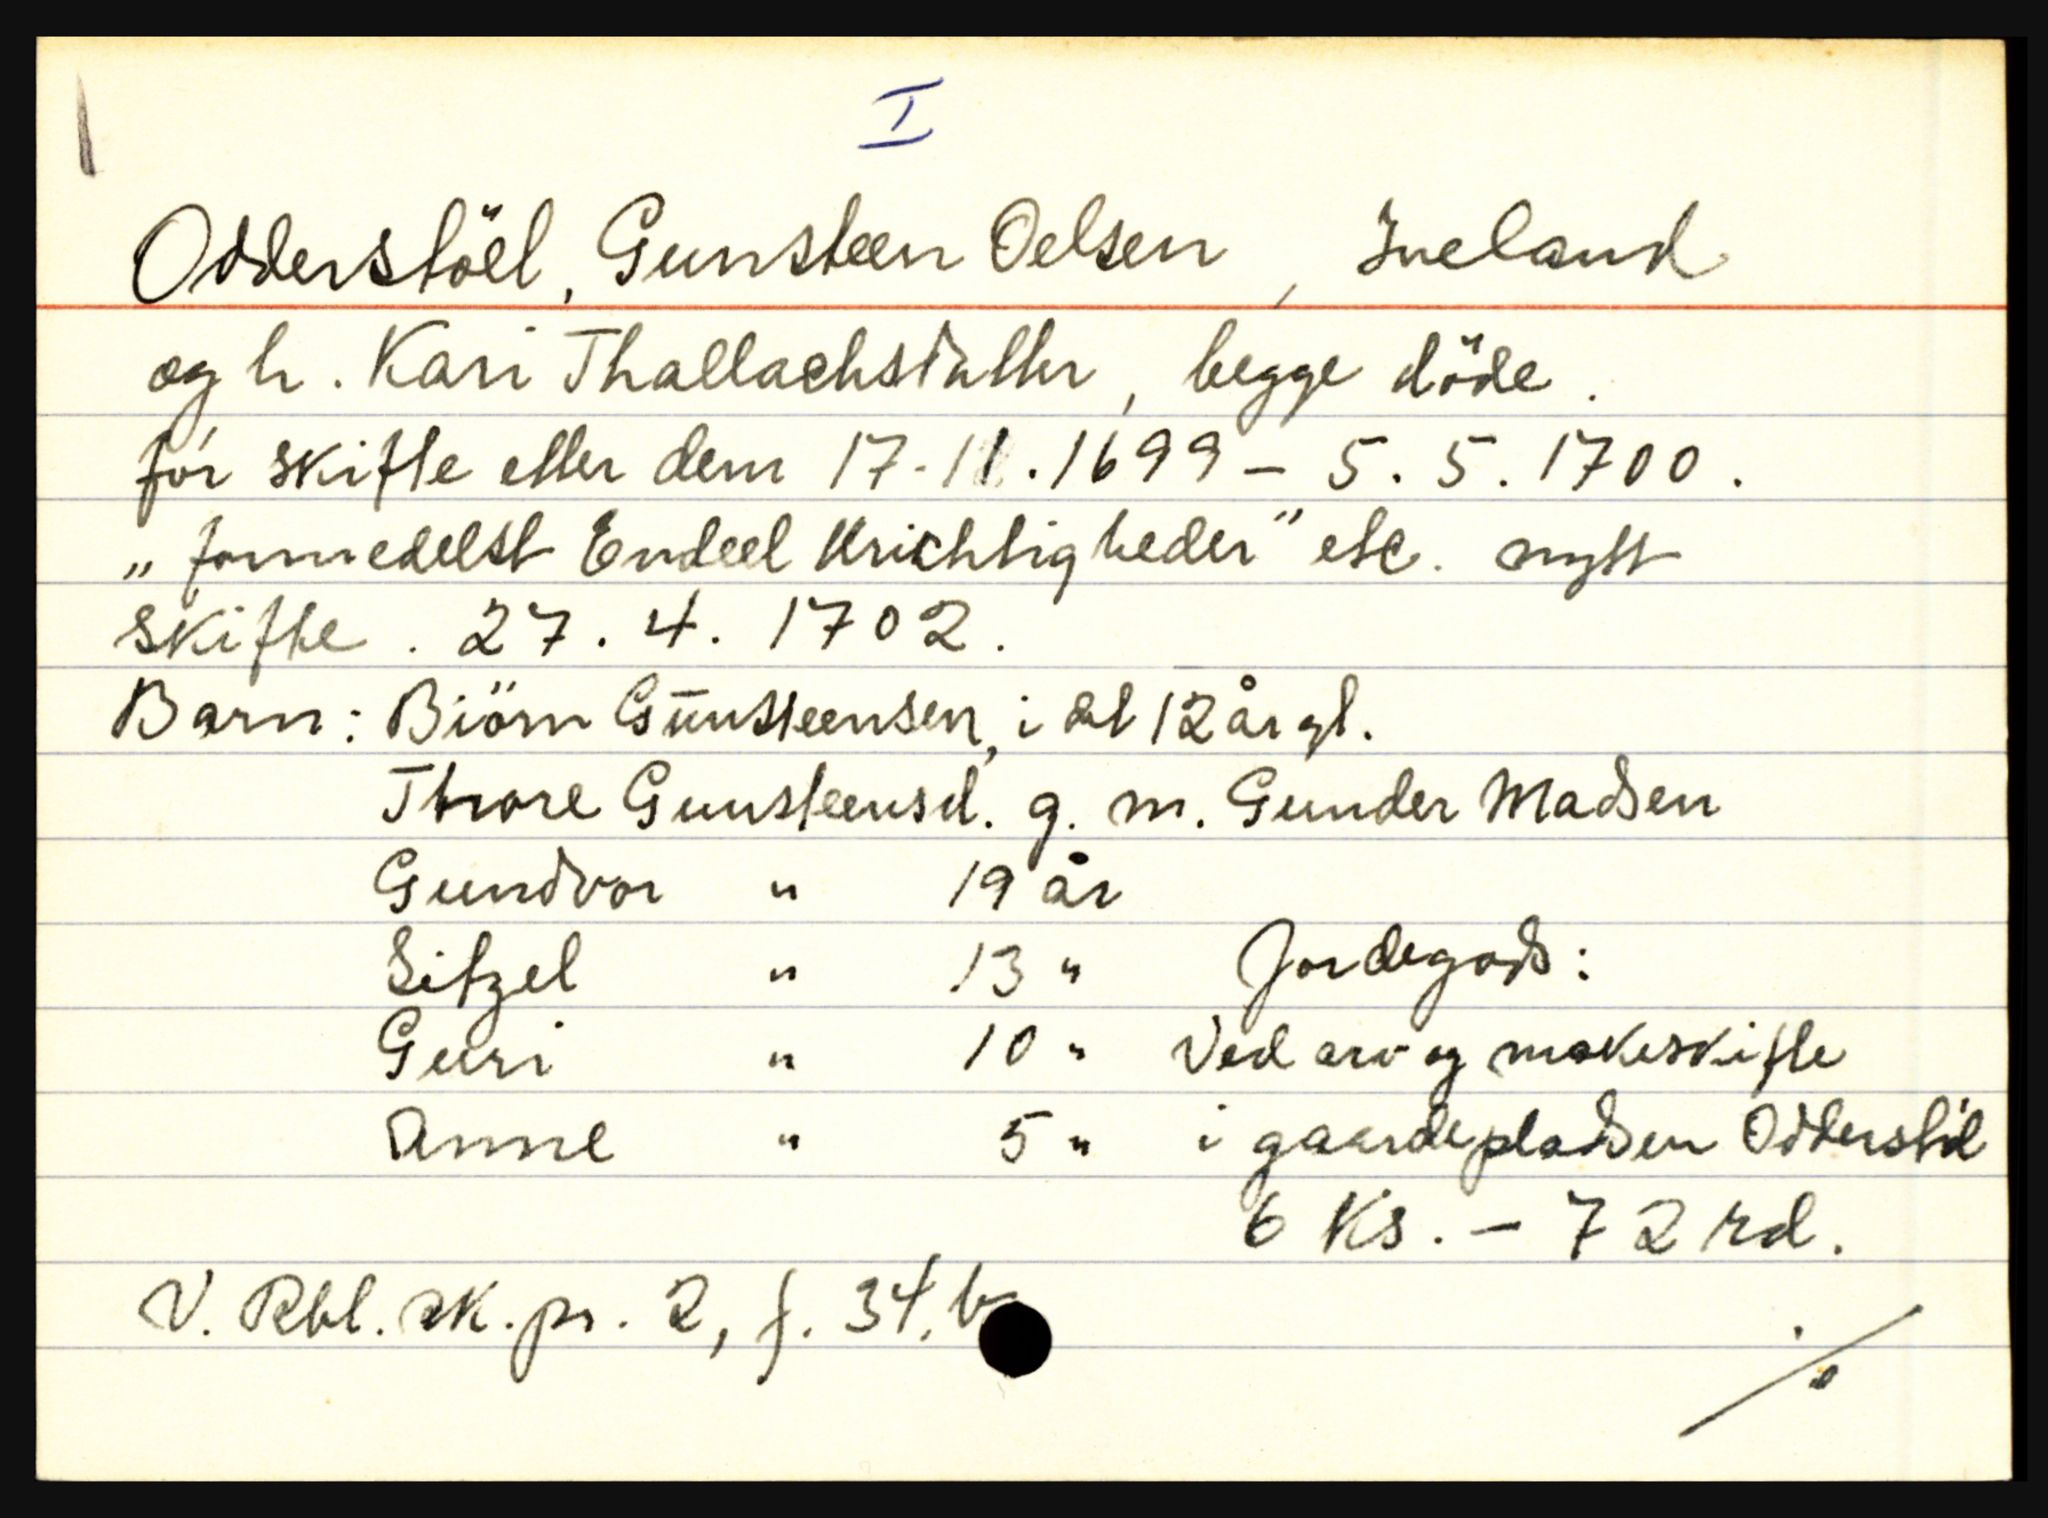 I
Odderstöel, Gunsteen Oelsen, Iveland
og h. Kari Thallachsdatter, begge döde.
för skifte etter dem 17-11.1699 - 5.5.1700.
„formedelst Endeel Urichtigheder" etc. nytt
skifte. 27.4.1702.
Barn: Biörn Gunsteensen, i det 12 år gl.
Thore Gunsteensd. g. m. Gunder Madsen
Gundvor " 19 år
Sitzel " 13 " Jordegods:
Guri " 10 " Ved arv og makeskifte
Anne " 5 " i gaardepladsen Odderstöl
6 Ks. - 72 rd.
V. Rbl. sk. pr. 2, f. 34, b
./.